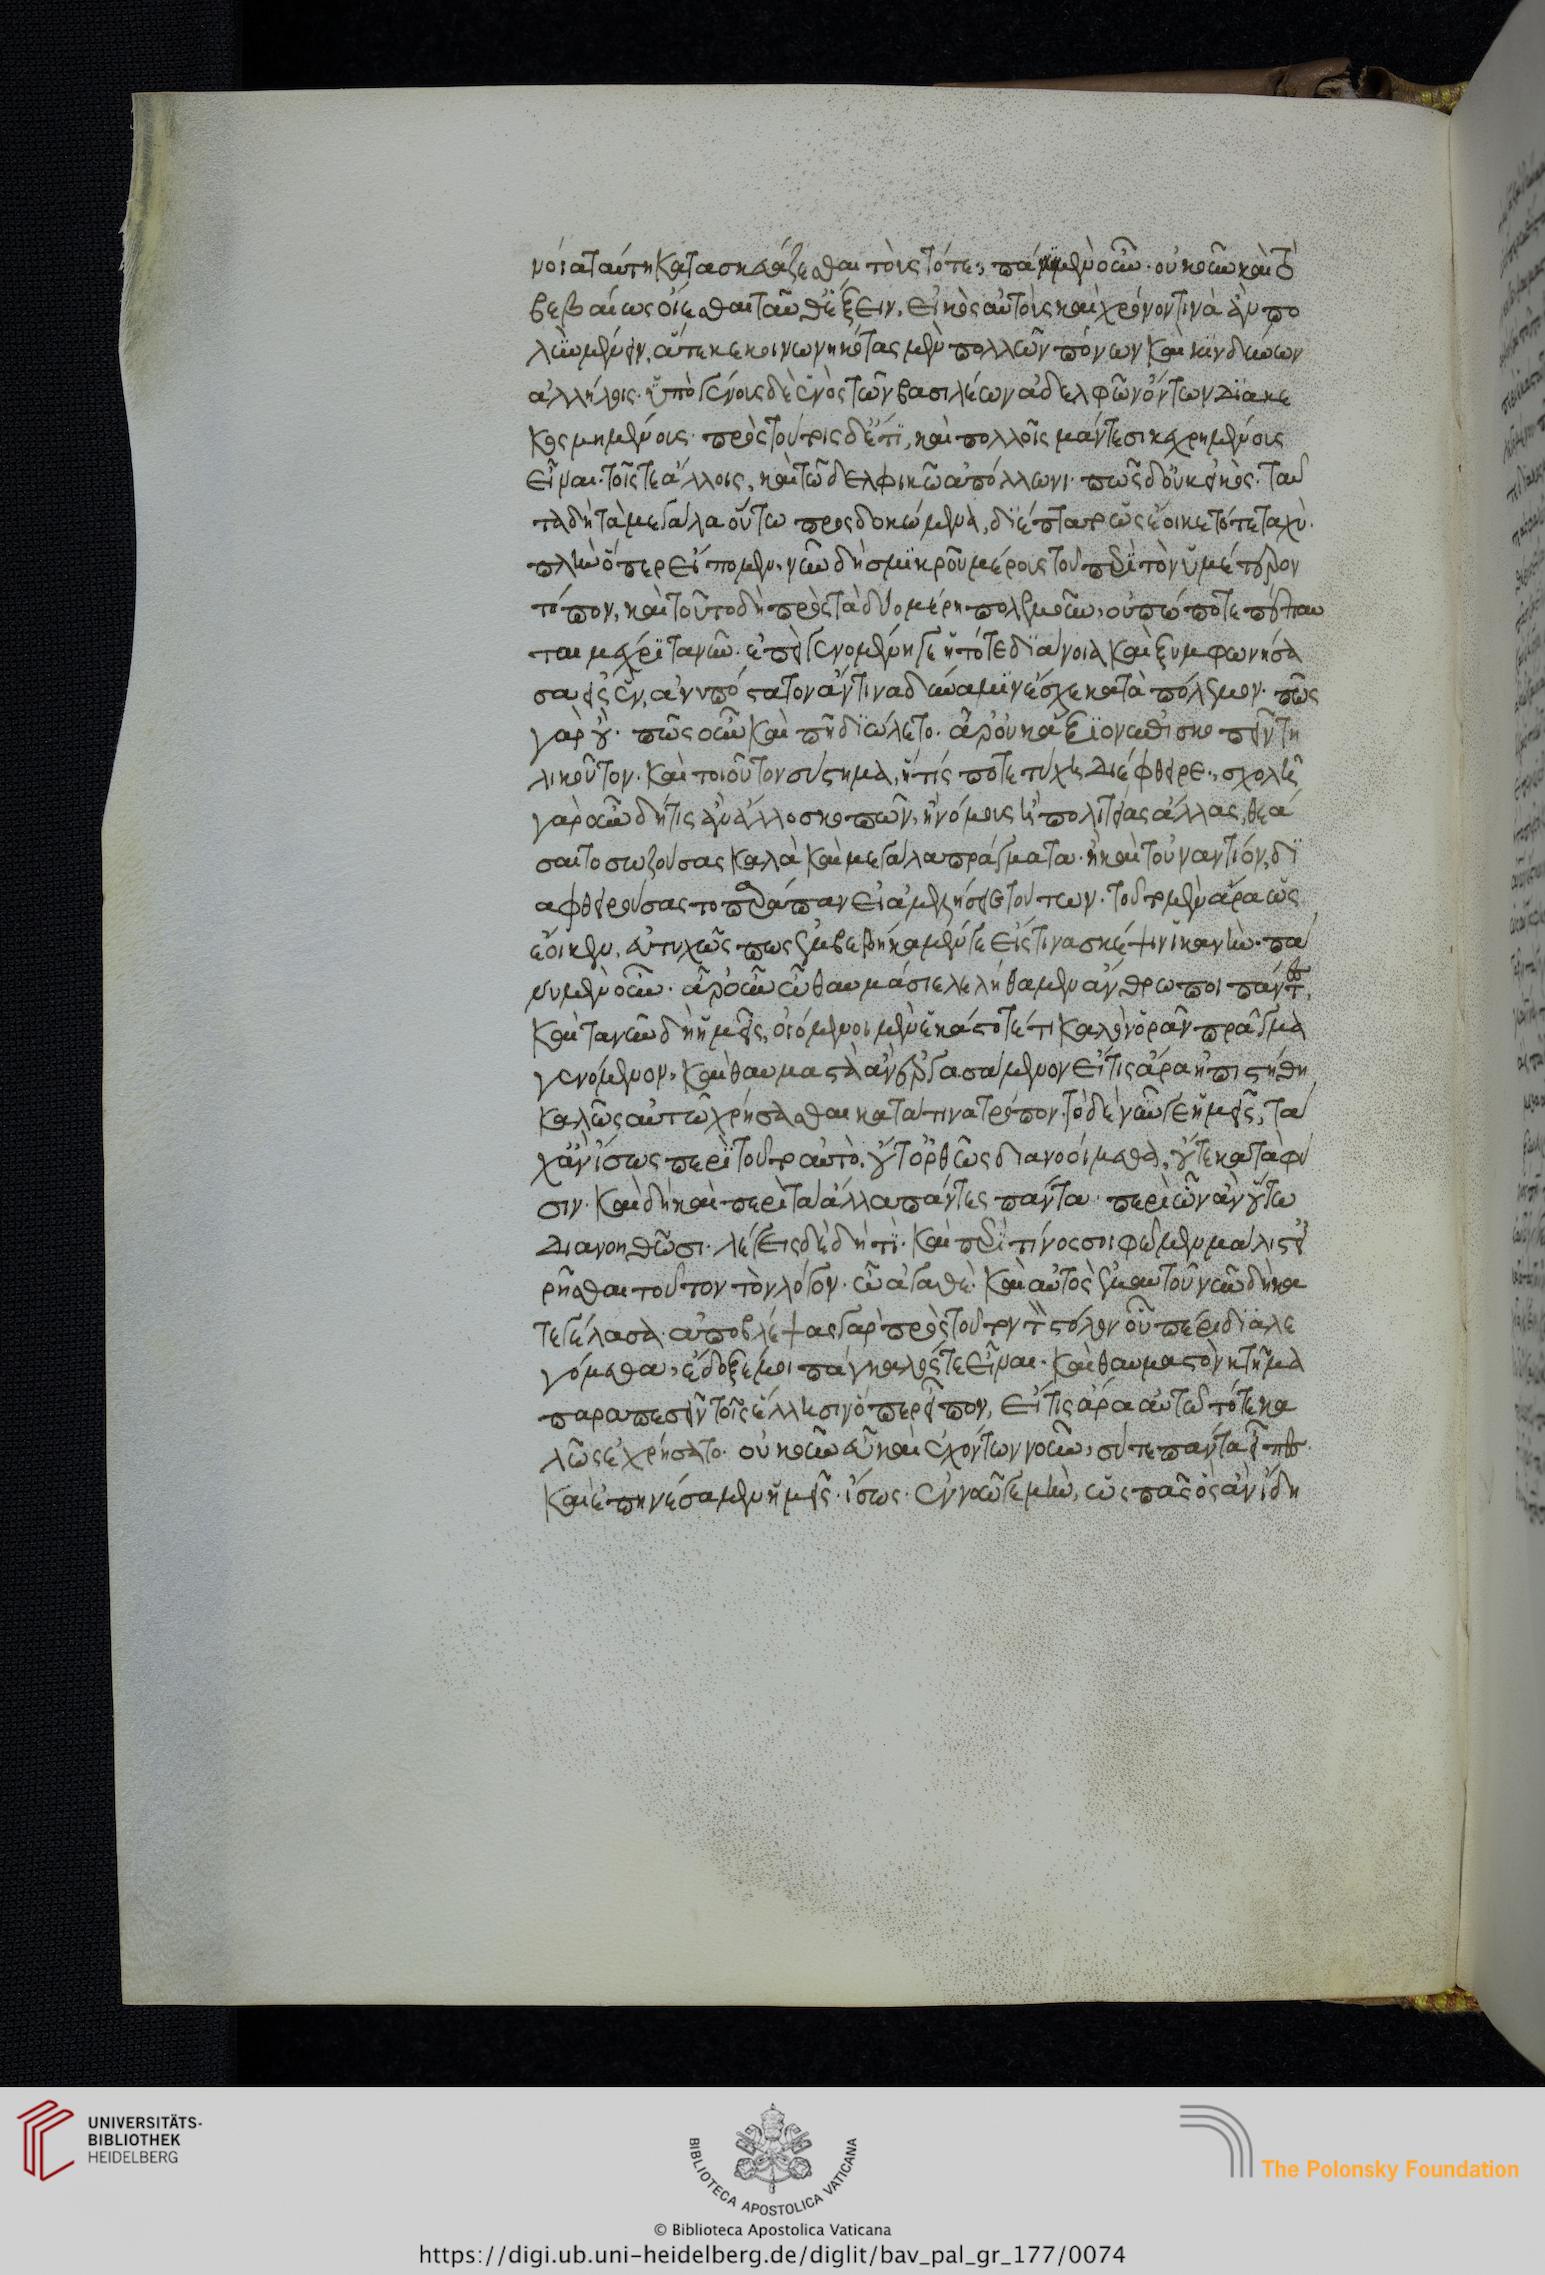 νοία ταύτη κατασκευάζεσθαι τοῖς τότε, πάνυ μὲν οὖν. οὐκοῦν καὶ τὸ
βεβαίως οἴεσθαι ταῦθ' ἕξειν, εἰκὸς αὐτοῖς καὶ χρόνον τινὰ ἂν πο
λὺν μένειν, ἅτε κεκοινωνηκότας μὲν πολλῶν πόνων καὶ κινδύνων
ἀλλήλοις. ὑπὸ γένους δὲ ἑνὸς τῶν βασιλέων ἀδελφῶν ὄντων διακε
κοσμημένοις. πρὸς τούτοις δ' ἔτι, καὶ πολλοῖς μάντεσι κεχρημένοις
εἶναι. τοῖς τε ἄλλοις, καὶ τῶ δελφικῶ ἀπόλλωνι. πῶς δ' οὐκ εἰκός. ταῦ
τα δὴ τὰ μεγάλα οὕτω προσδοκώμενα, διέπτατο ὡς ἔοικε τότε ταχύ.
πλὴν ὅπερ εἴπομεν, νῦν δὴ σμικροῦ μέρους τοῦ περὶ τὸν ὑμέτερον
τόπον, καὶ τοῦτο δὴ πρὸς τὰ δύο μέρη πολεμοῦν, οὐπώποτε πέπαυ
ται μέχρι τανῦν. ἐπεὶ γενομένη γε ἡ τότε διάνοια καὶ ξυμφωνήσα
σα εἰς ἕν, ἀνυπόστατον ἄν τινα δύναμιν ἔσχε κατὰ πόλεμον. πῶς
γὰρ οὔ. πῶς οὖν καὶ πῆ διώλετο. ἆρ' οὐκ ἄξιον ἐπισκοπεῖν τη
λικοῦτον. καὶ τοιοῦτον σύστημα, ἥτίς ποτε τύχη διέφθειρε, σχολῆ
γὰρ οὖν δή τις ἂν ἄλλο σκοπῶν, ἢ νόμους ἢ πολιτείας ἄλλας, θεά
σαιτο σωζούσας καλὰ καὶ μεγάλα πράγματα. ἢ καὶ τοὐναντίον, δι
αφθειρούσας το παράπαν εἰ ἀμελήσειε τούτων. τοῦτο μὲν ἄρα ὡς
ἔοικεν, εὐτυχῶς πως ἐμβεβήκαμέν γε εἴς τινα σκέψιν ἱκανήν. πά
νυ μὲν οὖν. ἆρ' οὖν ὦ θαυμάσιε λελήθαμεν ἄνθρωποι πάντες,
καὶ τανῦν δὴ ἡμεῖς, οἰόμενοι μὲν ἑκάστοτέ τι καλὸν ὁρᾶν πρᾶγμα
γενόμενον, καὶ θαυμαστὰ ἂν ἐργασάμενον εἴ τις ἄρα ἠπιστήθη
καλῶς αὐτῶ χρήσασθαι κατά τινα τρόπον. τὸ δὲ νῦν γε ἡμεῖς, τά
χ' ἂν ἴσως περὶ τοῦτο αὐτὸ. οὔτ' ὀρθῶς διανοοίμεθα, οὔτε κατὰ φύ
σιν. καὶ δὴ καὶ περὶ τὰ ἄλλα πάντες πάντα. περὶ ὧν ἂν οὕτω
διανοηθῶσι. λέγεις δὲ δὴ τί. καὶ περὶ τίνος σοι φῶμεν μάλιστ' εἰ
ρῆσθαι τοῦτον τὸν λόγον. ὦ 'γαθέ. καὶ αὐτὸς ἐμαυτοῦ νῦν δὴ κα
τεγέλασα. ἀποβλέψας γὰρ πρὸς τοῦτον τὸν στόλον οὗ πέρι διαλε
γόμεθα, ἔδοξέ μοι πάγκαλός τε εἶναι. καὶ θαυμαστὸν κτῆμα
παραπεσεῖν τοῖς ἕλλησιν ὅπερ εἶπον, εἴ τις ἄρα αὐτῶ τότε κα
λῶς ἐχρήσατο. οὐκοῦν εὖ καὶ ἐχόντων νοῦν, σύ τε πάντα εἶπες.
καὶ ἐπηνέσαμεν ἡμεῖς. ἴσως. ἐννοῶ γε μήν, ὡς πᾶς ὃς ἂν ἴδη
UNIVERSITÄTS-
BIBLIOTHEK
HEIDELBERG
BIBLIOTECA APOSTOLICA VATICANA
The Polonsky Foundation
© Biblioteca Apostolica Vaticana
https://digi.ub.uni-heidelberg.de/diglit/bav_pal_gr_177/0074